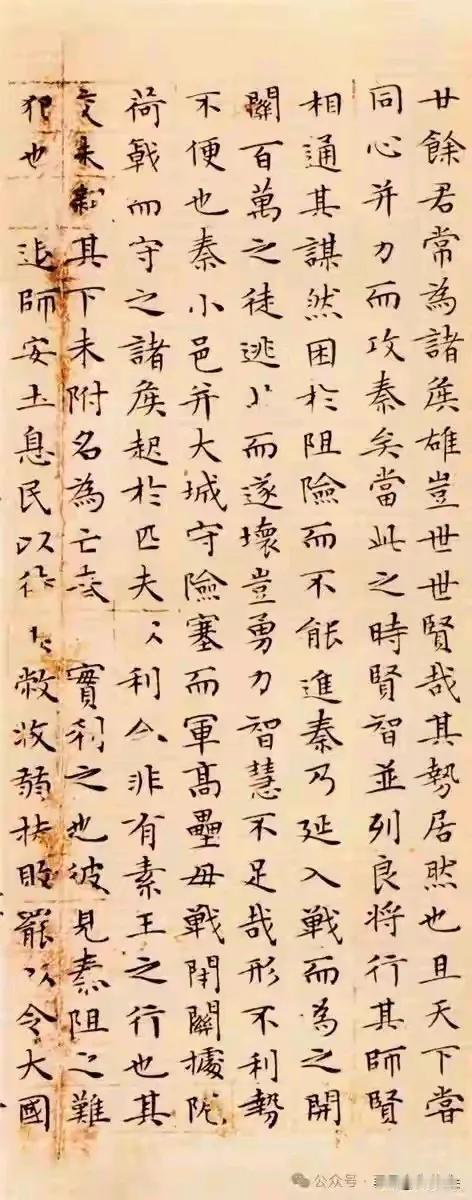 廿餘君常為諸侯雄豈世世賢哉其勢居然也且天下嘗
同心并力而攻秦矣當此之時賢智並列良將行其師賢
相通其謀然困於阻險而不能進秦乃延入戰而為之開
關百萬之徒逃北而遂壞豈勇力智慧不足哉形不利勢
不便也秦小邑并大城守險塞而軍高壘毋戰閉關據阨
荷戟而守之諸侯起於匹夫以利合非有素王之行也其
交未親其下未附名為亡秦實利之也彼見秦阻之難
犯也退師安土息民以待敝收弱扶罷以令大國
公众号·